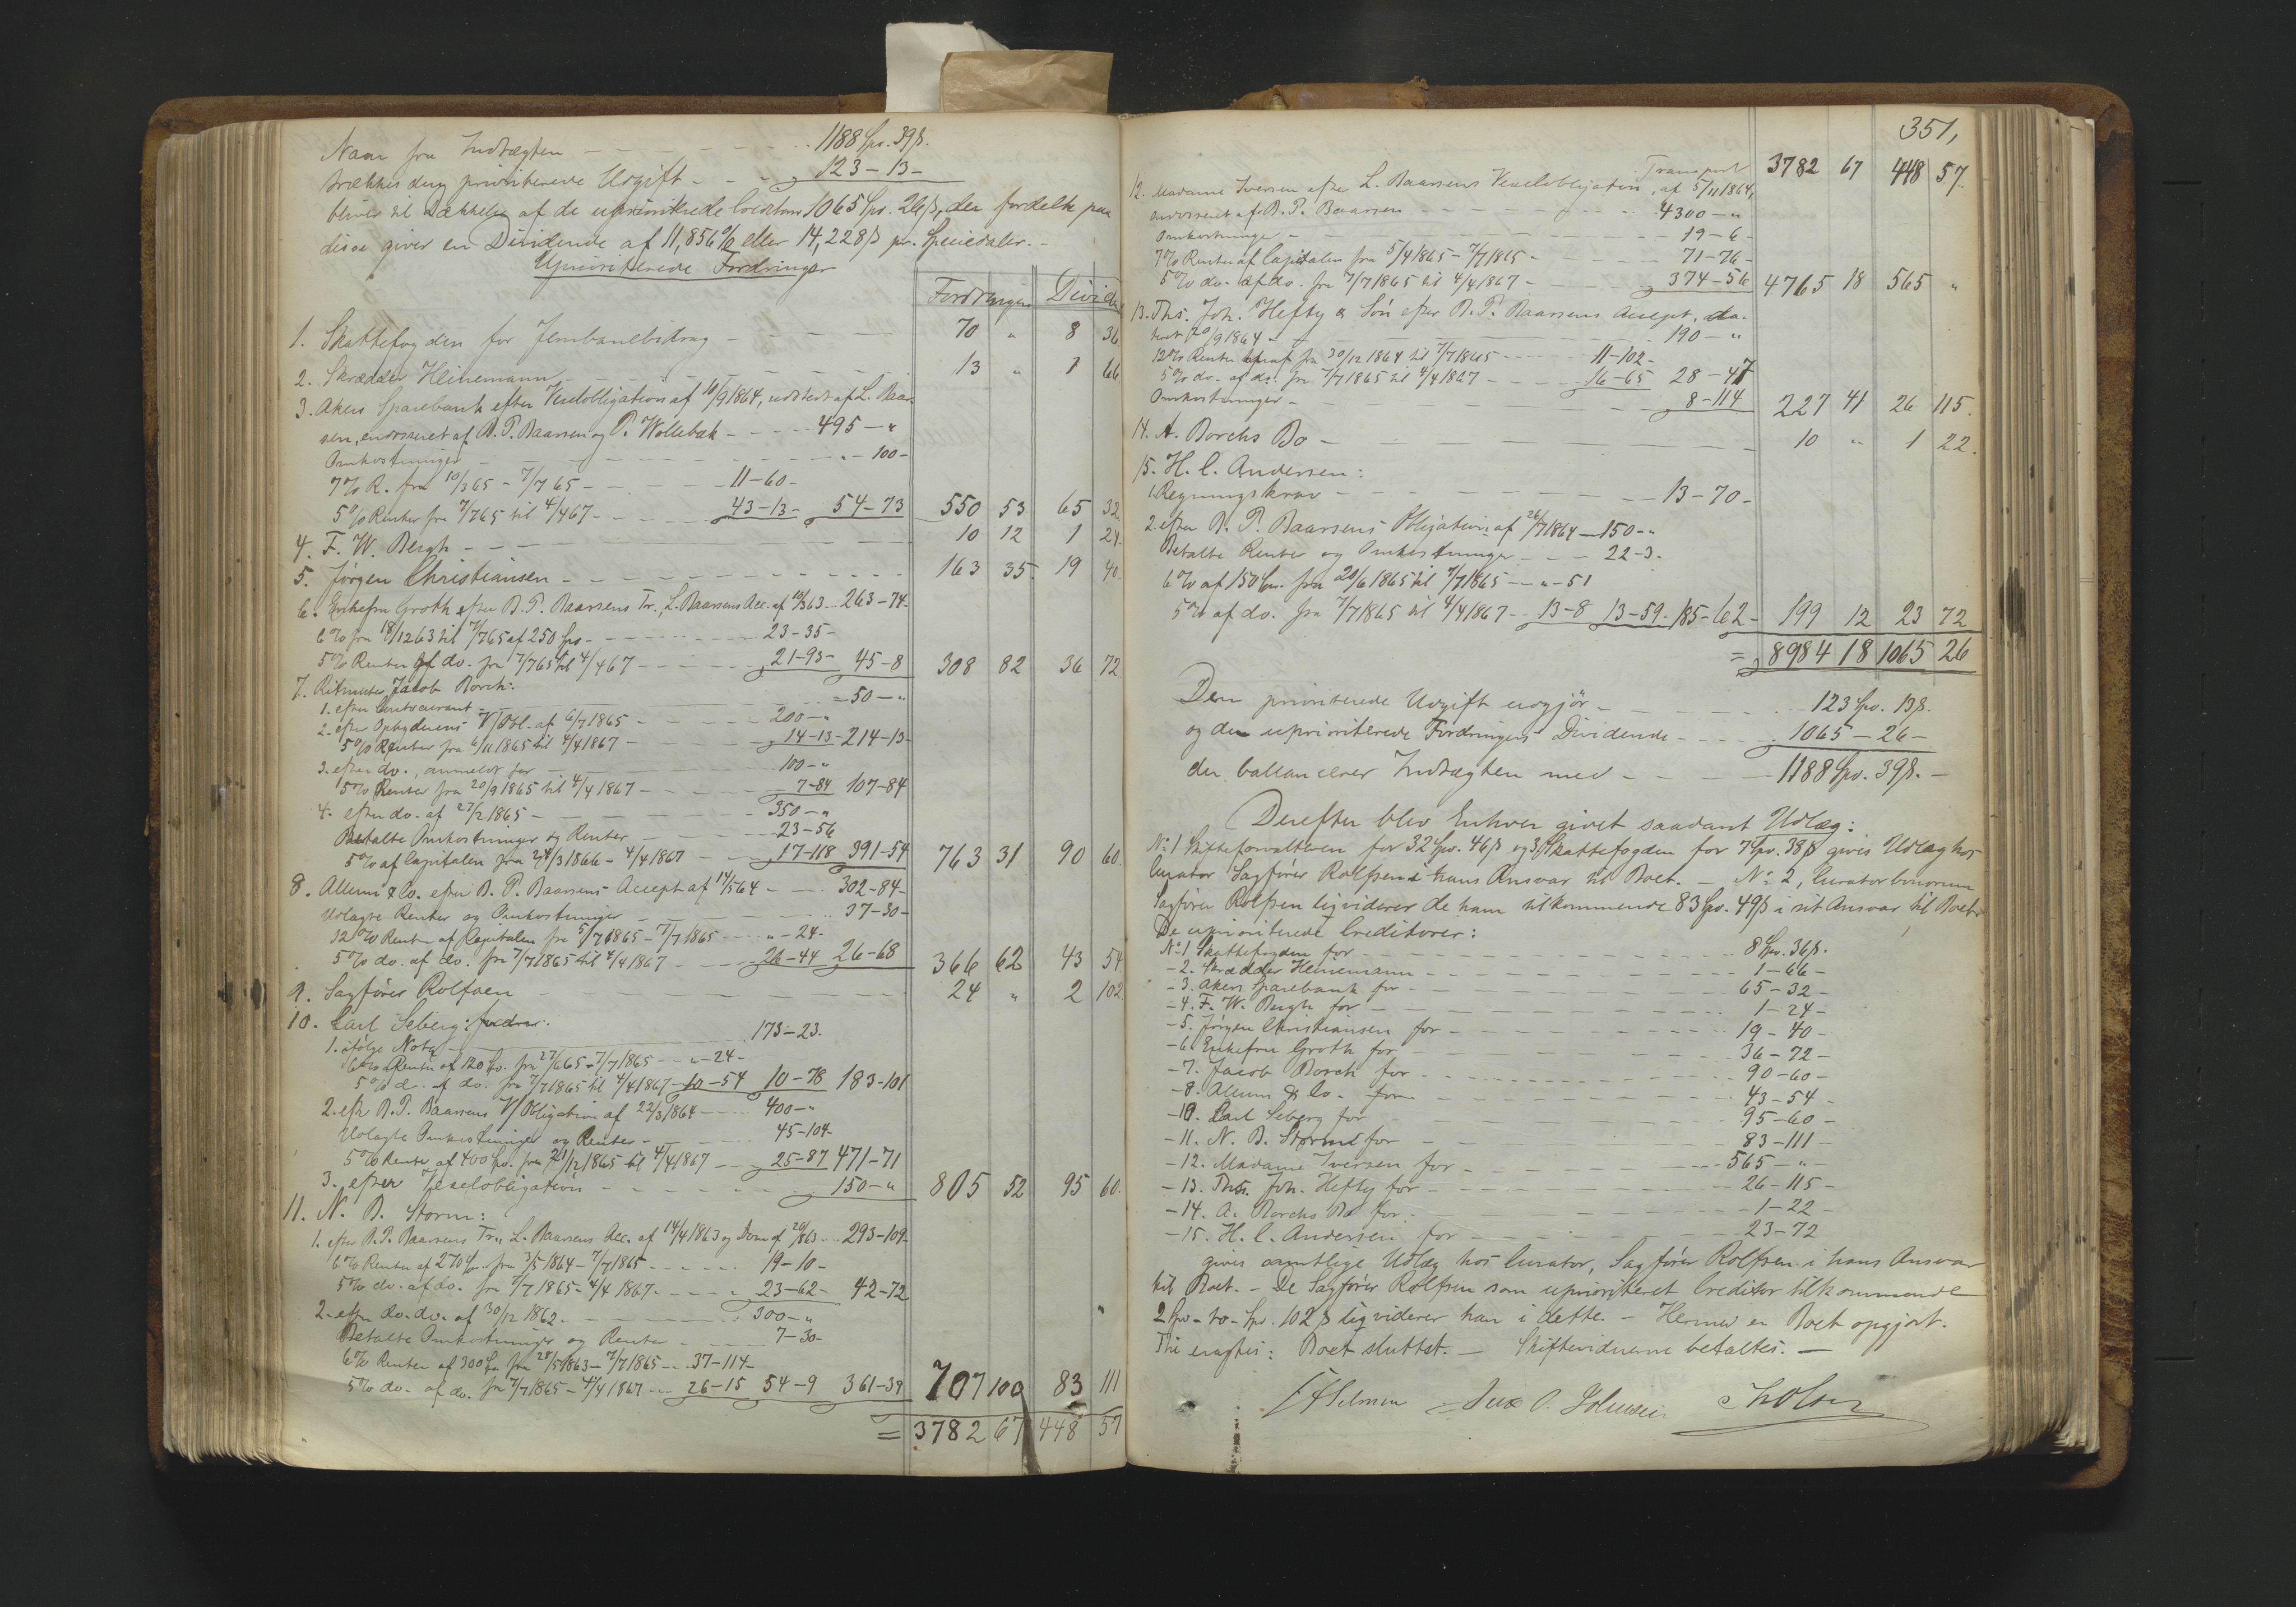 Naar fra Indtægten - - - 1188 Spd. 39 ß.
trækkes den prioriterede Udgift - - - 123 - 13 -
bliver til Dækkelse af de uprioriterede Creditorer 1065 Spd. 26 ß, der fordelt paa
disse giver en Dividende af 11,856 % eller 14,228 ß pr. Speciedaler. -
Uprioriterede Fordringer
Fordringer Divid
1. Skattefogden for Jernbanebidrag - - - 70 " 8 36
2. Skrædder Heinemann - - - 13 " 1 66
3. Akers Sparebank efter Vexelobligation af 10/9 1864, udstedt af L. Baar-
sen, endosseret af B. P. Baarsen og P. Wollebæk - - - 495 - "
Omkostninger - - - " - 100 -
7 % R. fra 10/3 65 - 7/7 65 - - - 11 - 60 -
5 % Renter fra 7/7 65 til 4/4 67 - - - 43 - 13 - 54 - 73 550 53 65 32
4. F. W. Bergh - - - 10 12 1 24
5. Jørgen Christiansen - - - 163 35 19 40
6. Enkefru Groth efter B. P. Baarsens Tr., L. Baarsens Acc. af 18/3 63 - 263 - 74 -
6 % fra 18/12 63 til 7/7 65 af 250 Spd - - - 23 - 35 -
5 % Renter af do. fra 7/7 65 til 4/4 67 - - - 21 - 93 - 45 - 8 308 82 36 72
7. Ritmester Jacob Borch:
1. efter Contocurant - - - 50 - "
2. efter Opbyderens V/Obl. af 6/7 1865 - - - 200 - "
5 % Renter fra 6/11 1865 til 4/4 1867 - - - 14 - 13 - 214 - 13 -
3. efter do., anmeldt for - - - 100 - "
5 % Renter fra 20/9 1865 til 4/4 1867 - - - 7 - 84 107 - 84
4. efter do. af 27/2 1865 - - - 350 - "
Betalte Omkostninger og Renter - - - 23 - 56
5 % af Capitalen fra 24/3 1866 - 4/4 1867 - - - 17 - 118 391 - 54 763 31 90 60.
8. Allum & Co. efter B. P. Baarsens Accept af 14/5 64 - - 302 - 84 -
Udlagte Renter og Omkostninger - - - 37 - 30 -
12 % Rente af Capitalen fra 5/7 1865 - 7/7 1865 - - " - 24 -
5 % do. af do. fra 7/7 1865 til 4/4 1867 - - - 26 - 44 26 - 68 366 62 43 54
9. Sagfører Rolfsen - - - 24 " 2 102
10. Carl Seberg fordrer:
1. ifølge Nota - - - 173 - 23.
6 % Renter af 120 Spd. fra 27/6 65 - 7/7 1865 - " - 24 -
5 % d. af do. fra 7/7 1865 til 4/4 1867 - 10 - 54 10 - 78 183 - 101
2. eft. B. P. Baarsens V/Obligation af 22/3 1864 - - 400 - "
Udlagte Omkostninger og Renter - - - 45 - 104 -
5 % Rente af 400 Spd. fra 21/12 1865 til 4/4 1867 - - 25 - 87 471 - 71
3. efter Vexelobligation - - - 150 - " 805 52 95 60.
11. N. B. Storm:
1. efter B. P. Baarsens Tr., L. Baarsens Acc. af 14/4 1863 og Dom af 20/8 63 - - 293 - 109 -
6 % Renter af 270 Spd. fra 3/5 1864 - 7/7 1865 - - - 19 - 10 -
5 % do. af do. fra 7/7 1865 - 4/4 1867 - - - 23 - 62 - 42 - 72
2. efter do. do. af 30/12 1862 - - - 300 - "
Betalte Omkostninger og Renter - - - 7 - 30 -
6 % Renter af 300 Spd. fra 28/5 1863 - 7/7 1865 - - 37 - 114 -
5 % do. af do. fra 7/7 1865 - 4/4 1867 - - 26 - 15 54 - 9 361 - 39 707 100 83 111
= 3782 67 448 57
351,
Transport 3782 67 448 57
12. Madame Iversen efter L. Baarsens Vexelobligation, af 5/11 1864,
endosseret af B. P. Baarsen - - - 4300 - "
Omkostninger - - - 19 - 6 -
7 % Renter af Capitalen fra 5/4 1865 - 7/7 1865 - - - 71 - 76 -
5 % do. af do. fra 7/7 1865 til 4/4 1867 - - - 374 - 56 4765 18 565 "
13. Ths. Joh. Hefty & Søn efter B. P. Baarsens Accept, da-
teret 20/9 1864 - - - 190 - "
12 % Renter heraf fra 30/12 1864 til 7/7 1865 - - - 11 - 102 -
5 % do. af do. fra 7/7 1865 til 4/4 1867 - - - 16 - 65 28 - 47
Omkostninger - - - 8 - 114 227 41 26 115.
14. A. Borchs Bo - - - 10 " 1 22.
15. H. C. Andersen:
1. Regningskrav - - - 13 - 70 -
2. efter B. P. Baarsens Obligation af 26/7 1864 - 150 - "
Betalte Renter og Omkostninger - - - 22 - 3 -
6 % af 150 Spd. fra 20/6 1865 til 7/7 1865 - - " - 51
5 % af do. fra 7/7 1865 til 4/4 1867 - - 13 - 8 13 - 59 - 185 - 62 - 199 12 23 72
= 8984 18 1065 26
Den prioriterede Udgift udgjør - - - 123 Spd. 13 ß.
og den uprioriterede Fordringers Dividende - - - 1065 - 26 -
der ballancerer Indtægten med - - - 1188 Spd. 39 ß. -
Derefter blev Enhver givet saadant Udlæg:
No 1 Skifteforvalteren for 32 Spd. 46 ß og 3, Skattefogden for 7 Spd. 38 ß gives Udlæg hos
Curator Sagfører Rolfsen i hans Ansvar til Boet. - No 2, Curator bonorum
Sagfører Rolfsen liqviderer de ham tilkommende 83 Spd. 49 ß i sit Ansvar til Boet.
De uprioriterede Creditorer:
No 1 Skattefogden for - - - 8 Spd. 36 ß.
- 2. Skrædder Heinemann - - - 1 - 66 -
- 3. Akers Sparebank for - - - 65 - 32 -
- 4. F. W. Bergh for - - - 1 - 24 -
- 5. Jørgen Christiansen for - - - 19 - 40 -
- 6. Enkefru Groth for - - - 36 - 72 -
- 7. Jacob Borch for - - - 90 - 60 -
- 8. Allum & Co. for - - - 43 - 54 -
- 10. Carl Seberg for - - - 95 - 60 -
- 11. N. B. Storm for - - - 83 - 111 -
- 12. Madame Iversen for - - - 565 - " -
- 13. Ths. Joh. Hefty for - - - 26 - 115 -
- 14. A. Borchs Bo for - - - 1 - 22 -
- 15. H. C. Andersen for - - - 23 - 72
gives samtlige Udlæg hos Curator, Sagfører Rolfsen i hans Ansvar
til Boet. - De Sagfører Rolfsen som uprioriteret Creditor tilkommende
2 Spd - to - Spd. 102 ß liqviderer han i dette. - Hermed er Boet opgjort.
Thi eragtes: Boet sluttet. - Skiftevidnerne betaltes. -